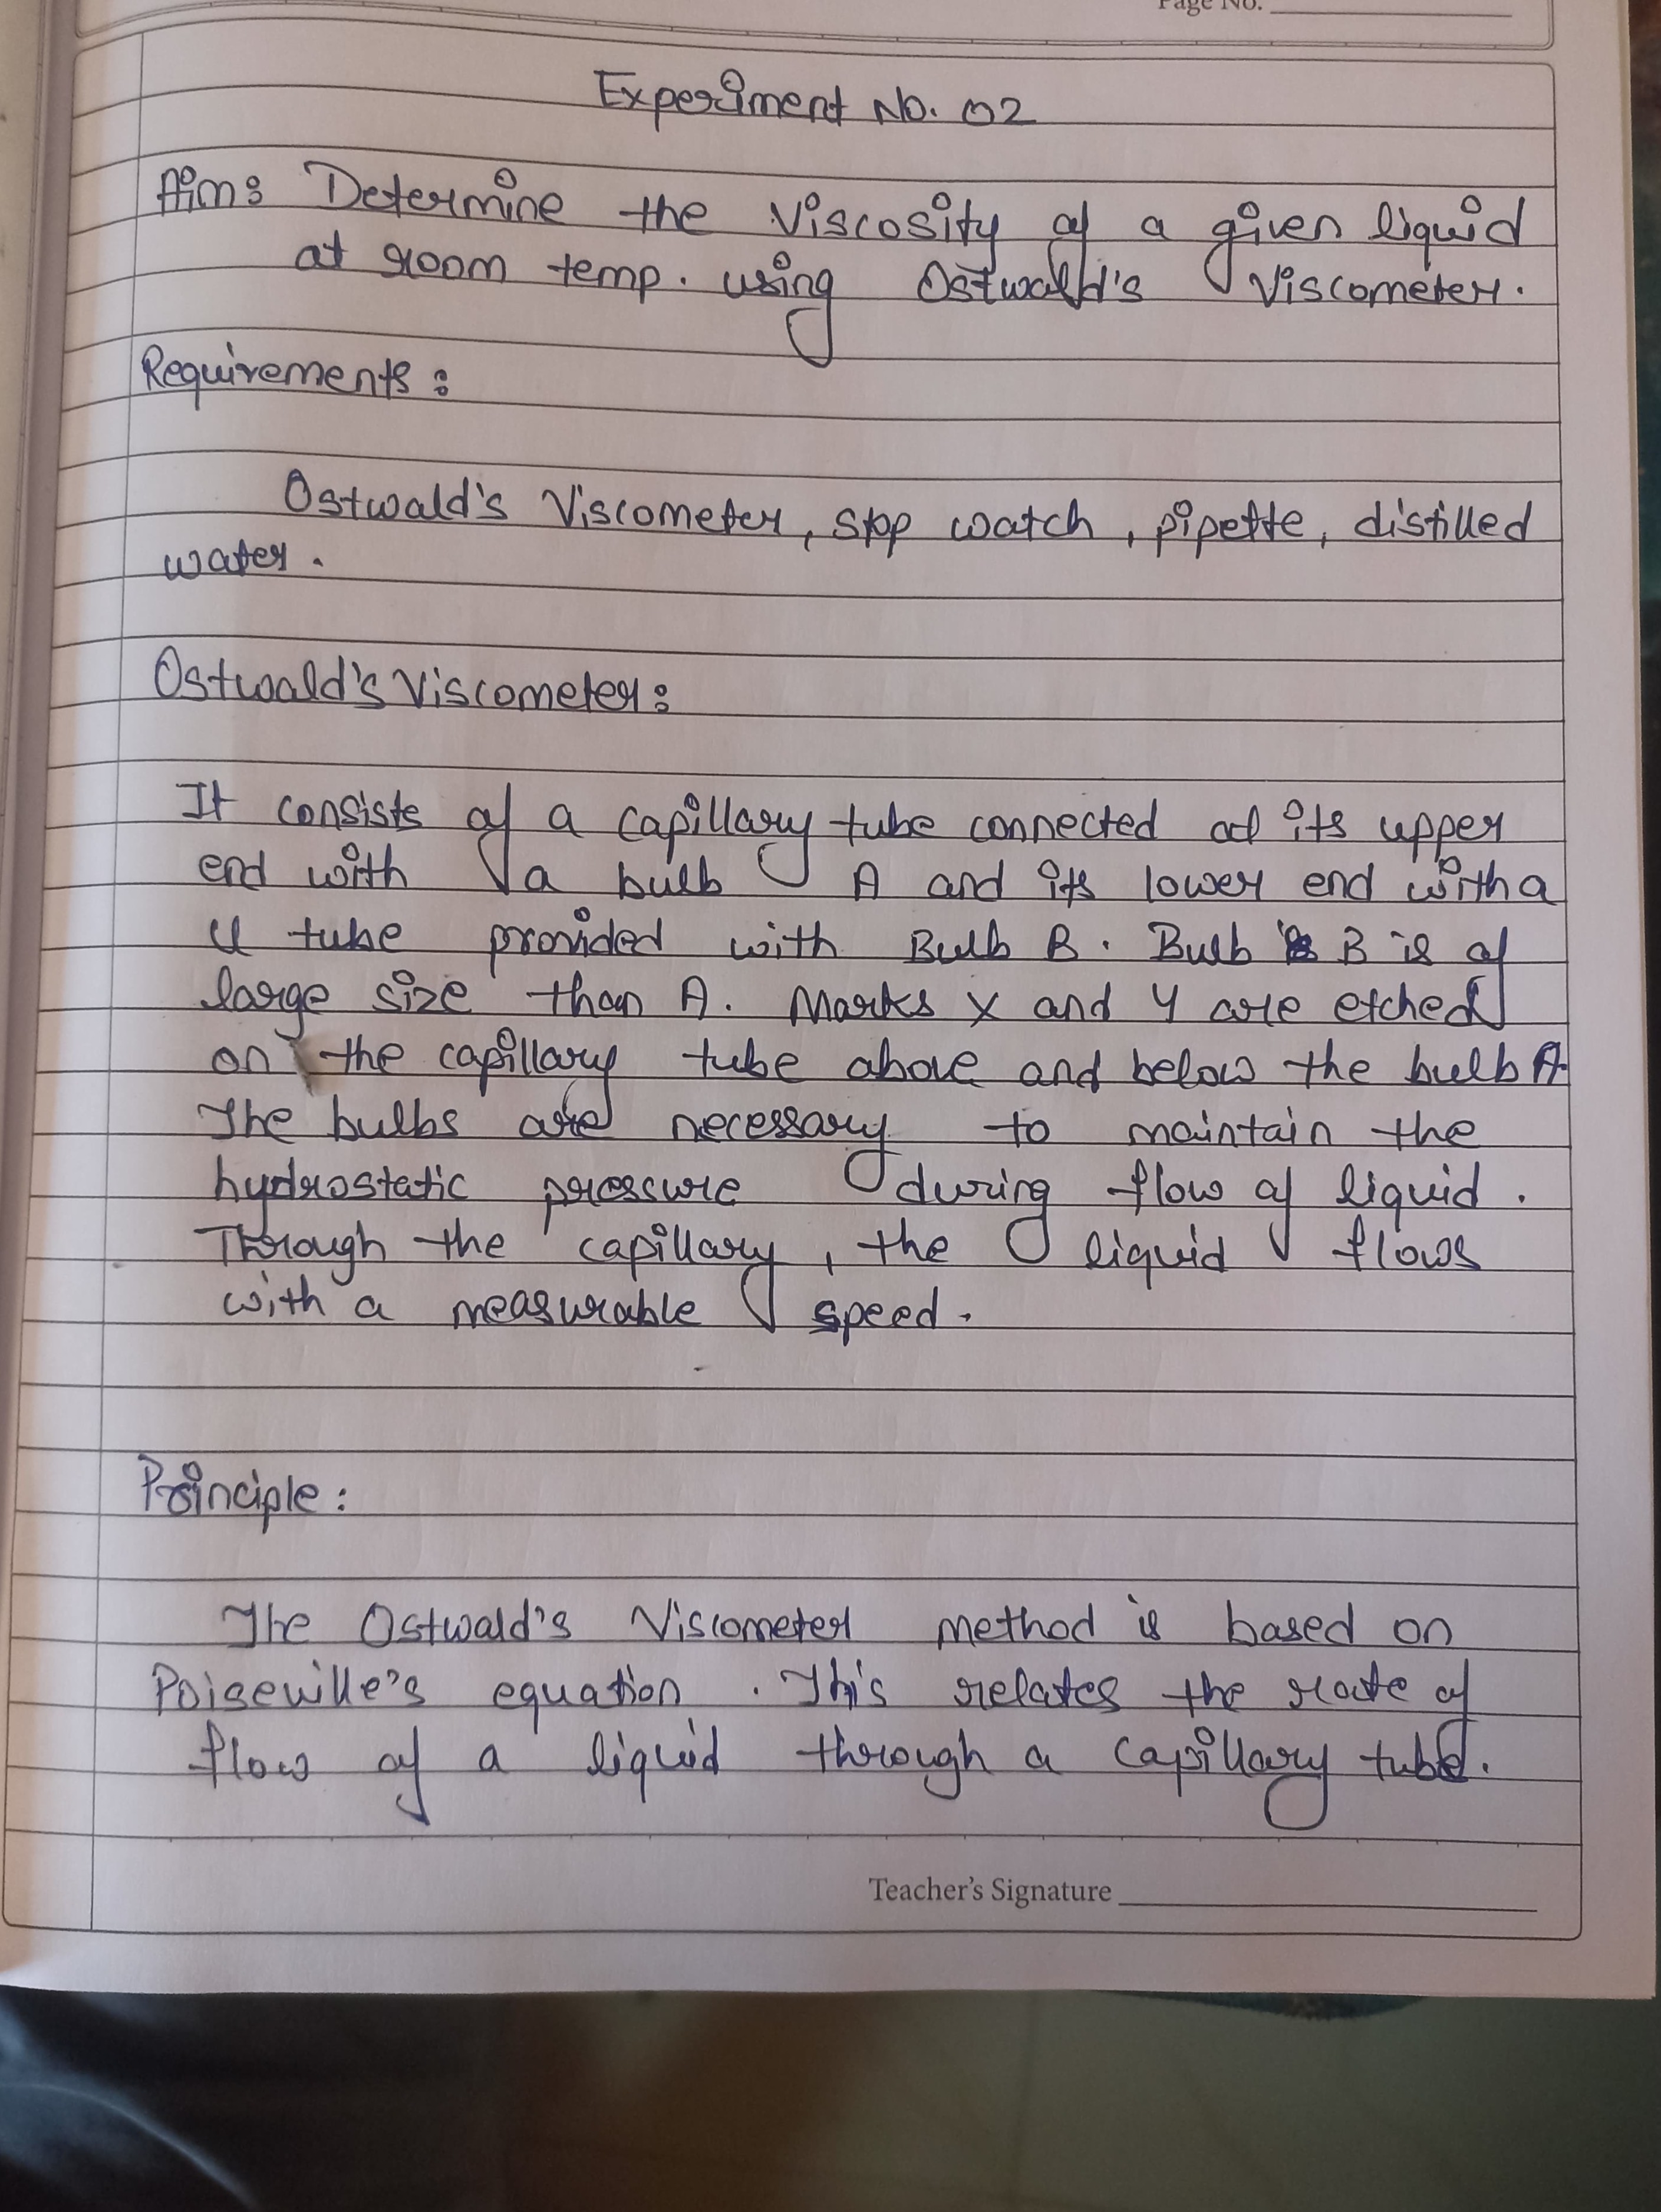 Page No.
Experiment No. 02
Aim: Determine the Viscosity of a given liquid
at room temp. using Ostwald's Viscometer.
Requirements:
Ostwald's Viscometer, stop watch, pipette, distilled
water.
Ostwald's Viscometer:
It consists of a capillary tube connected at its upper
end with a bulb A and its lower end with a
U tube provided with Bulb B. Bulb B is of
large size than A. Marks X and Y are etched
on the capillary tube above and below the bulb A
The bulbs are necessary to maintain the
hydrostatic pressure during flow of liquid.
Through the capillary, the liquid flows
with a measurable speed.
Principle:
The Ostwald's Viscometer method is based on
Poiseville's equation. This relates the rate of
flow of a liquid through a capillary tube.
Teacher's Signature